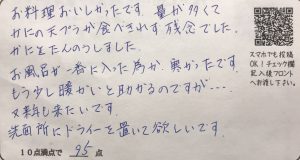 お料理おいしかったです。量が多くて
かにの天プラが食べきれず残念でした。
かにとたんのうしました。
お風呂が一番に入った為か、寒かったです。
もう少し暖かいと助かるのですが…
又来年も来たいです。
洗面所にドライヤーを置いて欲しいです。
10点満点で 95 点
スマホでも投稿
OK！チェック欄
記入後フロント
へお渡し下さい。